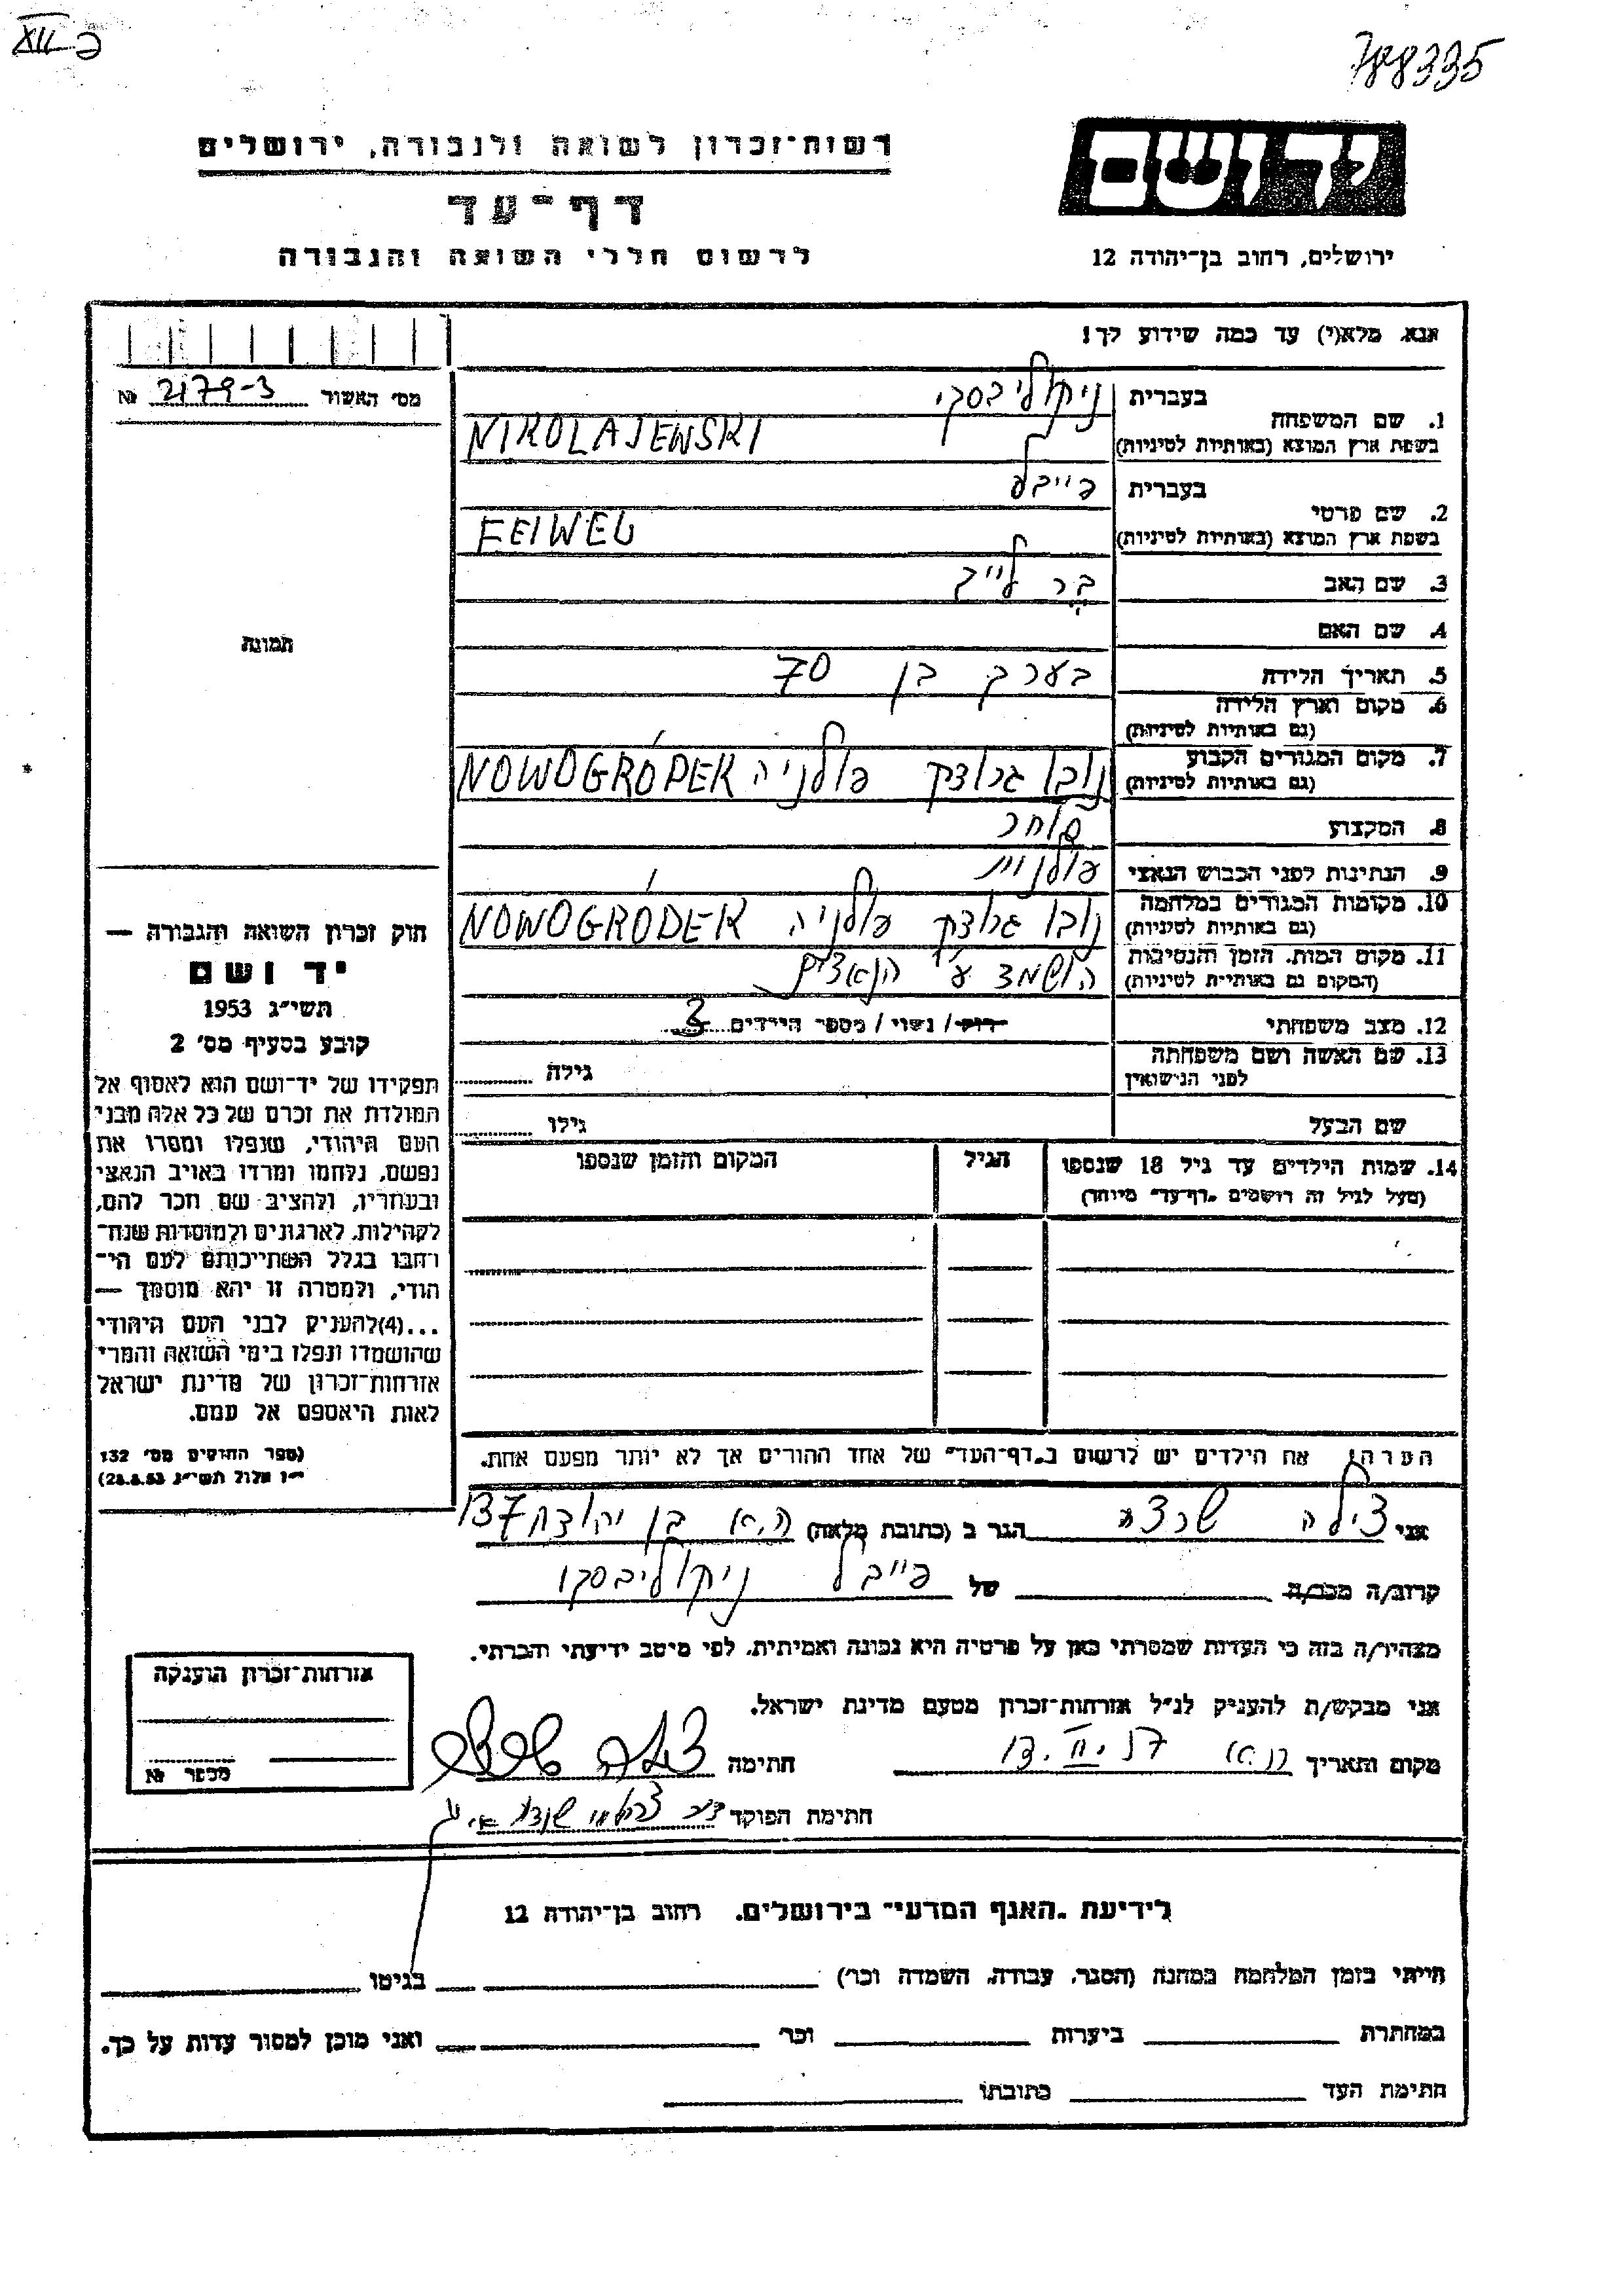 788335
רשות־זכרון לשואה ולגבורה, ירושלים
יד ושם
דף־עד
לרשום חללי השואה והגבורה
ירושלים, רחוב בן־יהודה 12
אנא מלא(י) עד כמה שידוע לך!
מס׳ האשור 2179-3 №
1. שם המשפחה
בעברית ניקולייבסקי
בשפת ארץ המוצא (באותיות לטיניות) NIKOLAJEWSKI
2. שם פרטי
בעברית פייבל
בשפת ארץ המוצא (באותיות לטיניות) FEIWEL
3. שם האב
4. שם האם
5. תאריך הלידה בערך בן 70
6. מקום וארץ הלידה
(גם באותיות לטיניות)
7. מקום המגורים הקבוע נובוגרודק פולניה NOWOGRÓDEK
(גם באותיות לטיניות)
8. המקצוע סוחר
9. הנתינות לפני הכבוש הנאצי פולנית
10. מקומות המגורים במלחמה נובוגרודק פולניה NOWOGRÓDEK
(גם באותיות לטיניות)
11. מקום המות, הזמן והנסיבות הושמד ע״י הנאצים
(המקום גם באותיות לטיניות)
12. מצב משפחתי רווק/ נשוי/ מספר הילדים 3
13. שם האשה ושם משפחתה
לפני הנישואין
גילה
שם הבעל גילו
14. שמות הילדים עד גיל 18 שנספו הגיל המקום והזמן שנספו
(מעל לגיל זה רושמים „דף־עד״ מיוחד)
תמונה
חוק זכרון השואה והגבורה —
יד ושם
תשי״ג 1953
קובע בסעיף מס׳ 2
תפקידו של יד־ושם הוא לאסוף אל
המולדת את זכרם של כל אלה מבני
העם היהודי, שנפלו ומסרו את
נפשם, נלחמו ומרדו באויב הנאצי
ובעוזריו, ולהציב שם וזכר להם,
לקהילות, לארגונים ולמוסדות שנח־
רבו בגלל השתייכותם לעם הי־
הודי, ולמטרה זו יהא מוסמך —
...(4)להעניק לבני העם היהודי
שהושמדו ונפלו בימי השואה והמרי
אזרחות־זכרון של מדינת ישראל
לאות היאספם אל עמם.
(ספר החוקים מס׳ 132
י״ז אלול תשי״ג 28.8.53)
הערה: את הילדים יש לרשום ב„דף־העד״ של אחד ההורים אך לא יותר מפעם אחת.
אני צילה שרצר הגר ב (כתובת מלאה) ת.א בן יהודה 137
קרוב/ה מכר/ה של פייבל ניקולייבסקי
מצהיר/ה בזה כי העדות שמסרתי כאן על פרטיה היא נכונה ואמיתית, לפי מיטב ידיעתי והכרתי.
אני מבקש/ת להעניק לנ״ל אזרחות־זכרון מטעם מדינת ישראל.
מקום ותאריך ת.א חתימה
חתימת הפוקד
אזרחות־זכרון הוענקה
מספר №
לידיעת „האגף המדעי״ בירושלים, רחוב בן־יהודה 12
הייתי בזמן המלחמה במחנה (הסגר, עבודה, השמדה וכו׳) בגיטו
במחתרת ביערות וכו׳ ואני מוכן למסור עדות על כך.
חתימת העד כתובתו